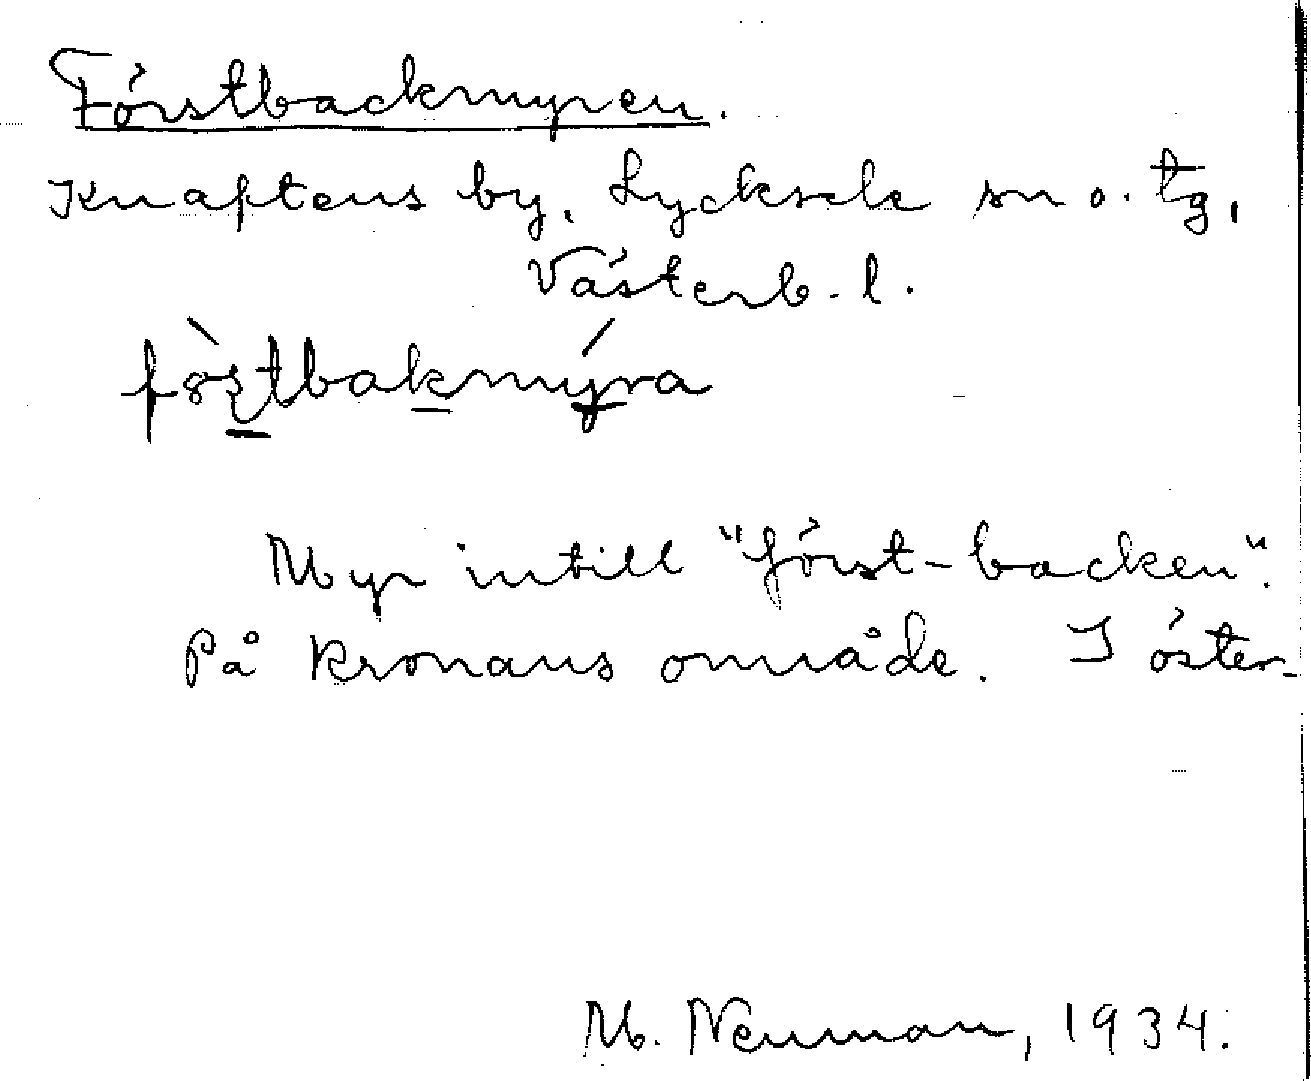 Förstbackmyren.
Knaftens by, Lycksele sn o. tg,
Västerb. l.
Myr intill "först-backen".
På Kronans område. I öster-
M. Neuman, 1934.